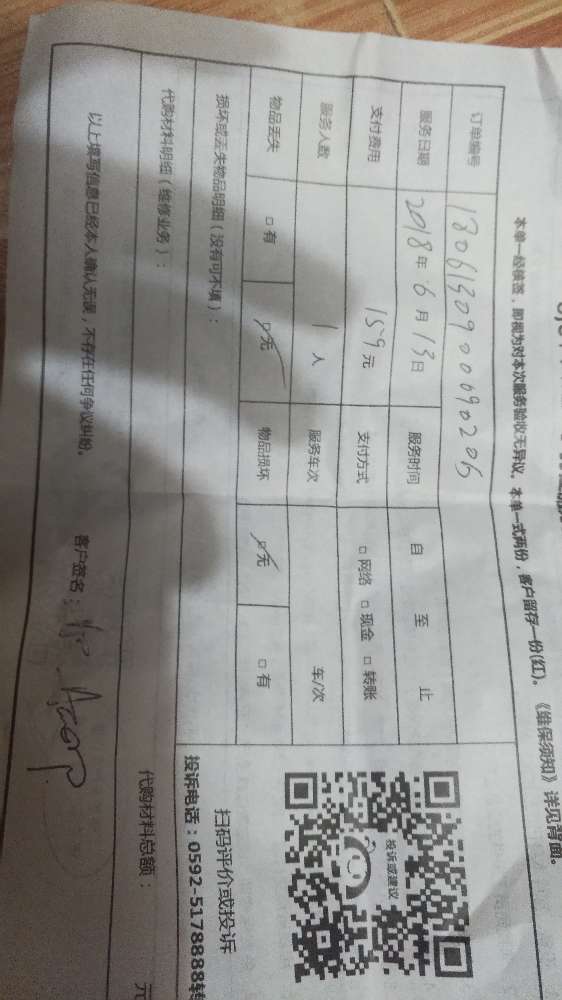 本单一经续签，即视为对本次服务验收无异议。本单一式两份，客户留存一份(红)。《维保须知》详见背面。
订单编号
服务日期 2018年 6月 13日 服务时间 自 至 止
支付费用 159元 支付方式 □ 网络 □ 现金 □ 转账
服务人数 1 人 服务车次 车/次
物品丢失 □ 有 □ 无 物品损坏 □ 无 □ 有
投诉或建议
扫码评价或投诉
投诉电话：0592-5178888转
损坏或丢失物品明细（没有可不填）：
代购材料明细（维修业务）： 代购材料总额： 元
以上填写信息已经本人确认无误，不存在任何争议纠纷。 客户签名：